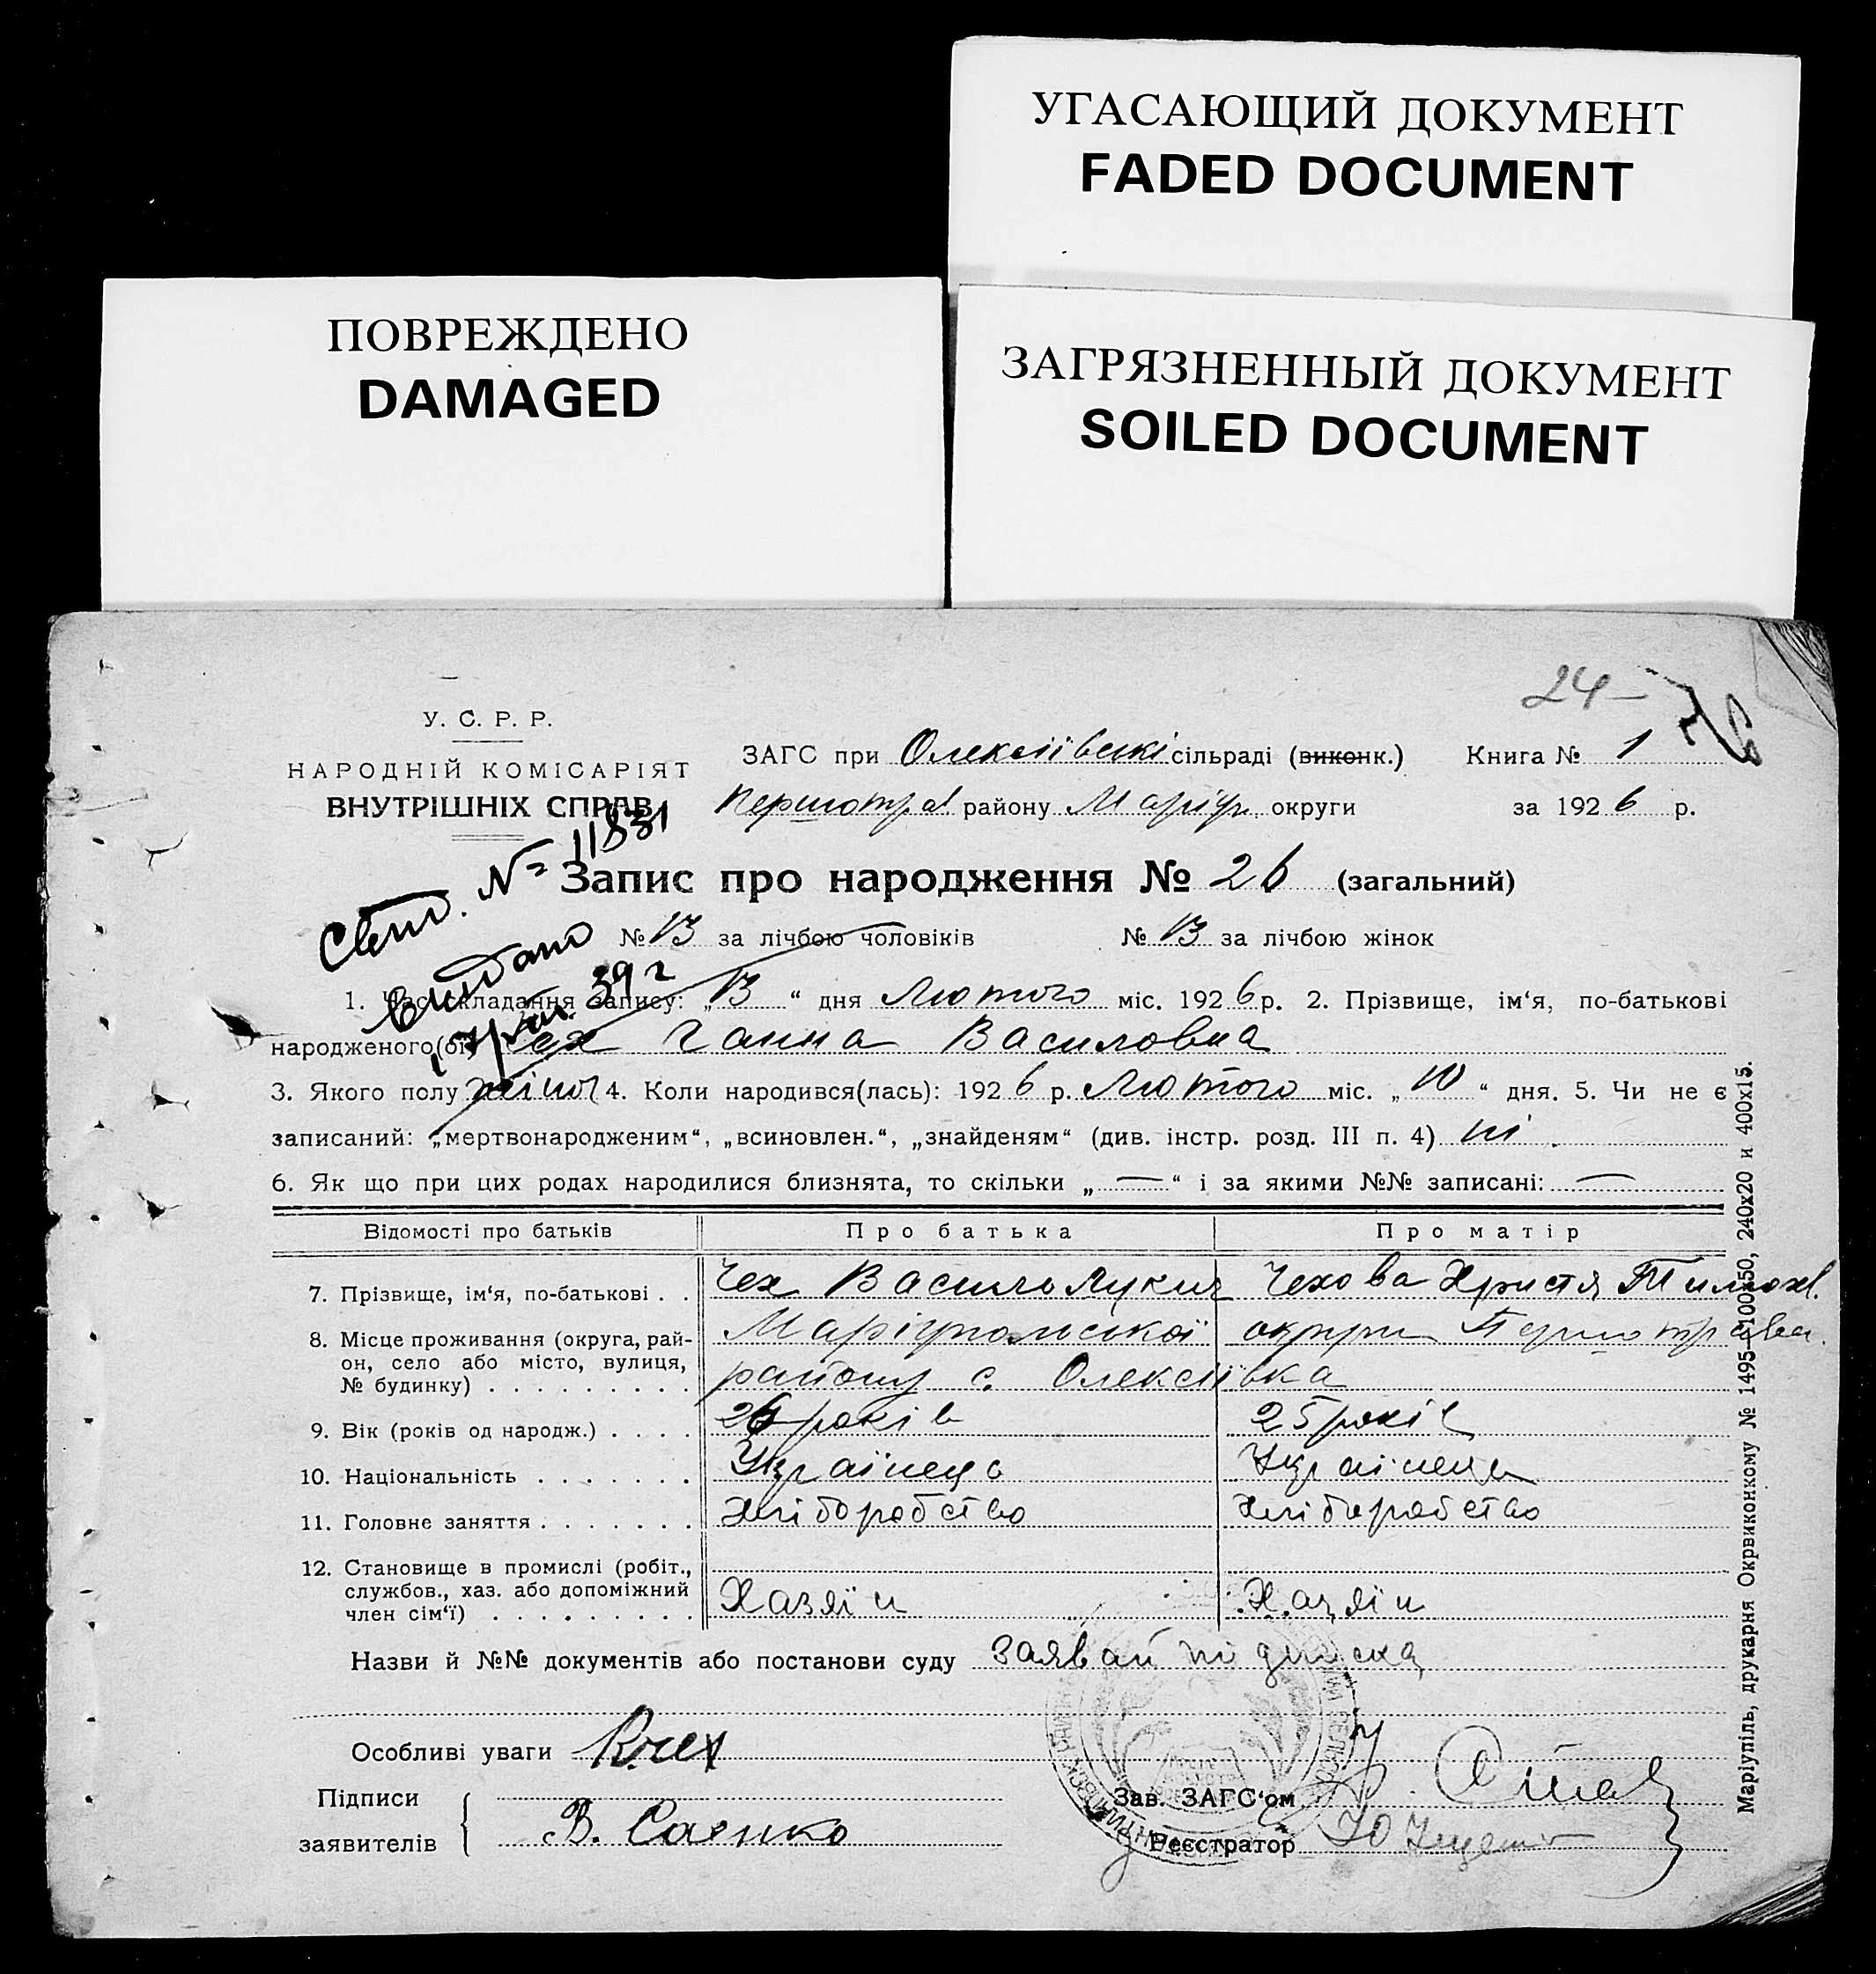 УГАСАЮЩИЙ ДОКУМЕНТ
FADED DOCUMENT
ПОВРЕЖДЕНО
DAMAGED
ЗАГРЯЗНЕННЫЙ ДОКУМЕНТ
SOILED DOCUMENT
24
У. С. Р. Р.
НАРОДНІЙ КОМІСАРІЯТ
ВНУТРІШНІХ СПРАВ
ЗАГС при Олексіївські сільраді (виконк.) Книга № 1
Першотрав. району Маріуп. округи за 1926 р.
№ 11831
Запис про народження № 26 (загальний)
№ 13 за лічбою чоловіків № 13 за лічбою жінок
Видано
39 г
1. Час складання запису: „13“ дня Лютого міс. 1926 р. 2. Прізвище, ім‘я, по-батькові
народженого(ої) Чех Ганна Василовна
3. Якого полу жіноч 4. Коли народився(лась): 1926 р. Лютого міс. „10“ дня. 5. Чи не є
записаний: „мертвонародженим“, „всиновлен.“, „знайденям“ (див. інстр. розд. III п. 4) ні.
6. Як що при цих родах народилися близнята, то скільки „—“ і за якими №№ записані: —
Відомості про батьків Про батька Про матір
7. Прізвище, ім‘я, по-батькові . . Чех Василь Лукич Чехова Христя Тимохв.
8. Місце проживання (округа, рай- Маріупольської округи Першотравен.
он, село або місто, вулиця, району с. Олексіївка
№ будинку) . . . . . . . . .
9. Вік (років од народж.) . . . . 26 років 25 років
10. Національність . . . . . . . Українець Українець
11. Головне заняття . . . . . . . Хліборобство Хліборобство
12. Становище в промислі (робіт.,
службов., хаз. або допоміжний Хазяїн Хазяїн
член сім‘ї) . . . . . . . . .
Назви й №№ документів або постанови суду заявай підписка
Особливі уваги
Підписи
заявителів В. Саенко
Зав. ЗАГС‘ом
Реєстратор
Маріупіль, друкарня Окрвиконкому № 1495—100х50, 240х20 и 400х15.